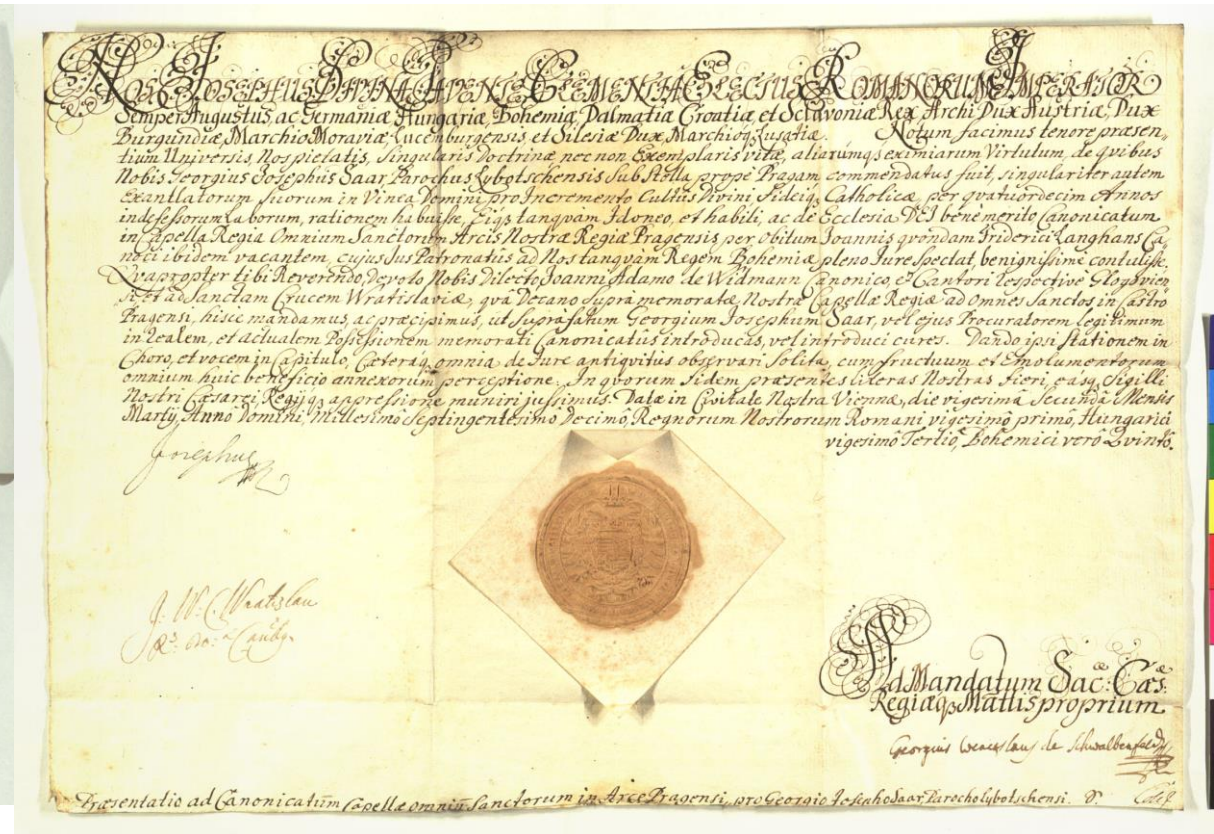 NOS JOSEPHUS DIVINA FAVENTE CLEMENTIA ELECTUS ROMANORUM IMPERATOR
Semper Augustus, ac Germaniæ Hungariæ, Bohemiæ, Dalmatiæ Croatiæ et Sclavoniæ Rex, Archi Dux Austriæ, Dux
Burgundiæ, Marchio Moraviæ, Lucemburgensis, et Silesiæ Dux, Marchioq; Lusatiæ. Notum facimus tenore præsen-
tium Universis, Nos pietatis, singularis Doctrinæ nec non Exemplaris vitæ, aliarumq; eximiarum Virtutum, de qvibus
Nobis Georgius Josephus Saar, Parochus Lybotschensis Sub Stella prope Pragam commendatus fuit, singulariter autem
exantlatorum suorum in Vinea Domini pro Incremento Cultus Divini, Fideiq; Catholicæ, per qvatuordecim Annos
indefessorum Laborum, rationem habuisse, Eiq; tanqvam Idoneo, et habili, ac de Ecclesia DEI benemerito Canonicatum
in Capella Regia Omnium Sanctorum Arcis Nostræ Regiæ Pragensis per obitum Joannis qvondam Friderici Langhans Ca-
noci ibidem vacantem, cujus Jus Patronatus ad Nos tanqvam Regem Bohemiæ pleno Jure spectat, benignissime contulisse,
Qvapropter tibi Reverendo, Devoto Nobis Dilecto, Joanni Adamo de Widmann Canonico, et Cantori respectivè Glogvien,
si, et ad Sanctam Crucem Wratislaviæ, qvà Decano supra memoratæ Nostræ Capellæ Regiæ ad Omnes Sanctos in Castro
Pragensi, hisce mandamus, ac præcipimus, ut supra fatum Georgium Josephum Saar, vel ejus Procuratorem legitimum
in Realem, et actualem Possessionem memorati Canonicatus introducas, vel introduci cures. Dando ipsi stationem in
Choro, et vocem in Capitulo, Cæteraq; omnia de Jure antiqvitus observari Solita, cum fructuum et Emolumentorum
omnium huic beneficio annexorum perceptione. In qvorum fidem præsentes literas Nostras fieri, easq; Sigilli
Nostri Cæsarei Regijq; appressione muniri jussimus. Datæ in Civitate Nostra Viennæ, die vigesima Secunda Mensis
Martij, Anno Domini, Millesimo Septingentesimo Decimo, Regnorum Nostrorum Romani vigesimo primo, Hungarici
vigesimo Tertio, Bohemici verò Qvinto.
Josephus
J. W. C. Wratislau
Ad Mandatum Sac: Cæs:
Regiæq; Mattis proprium
Georgius Wenceslaus de Schwalbenfeld
Præsentatio ad Canonicatum Capellæ omniũ Sanctorum in Arce Pragensi, pro Georgio Josepho Saar, Parocho lybotschensi.